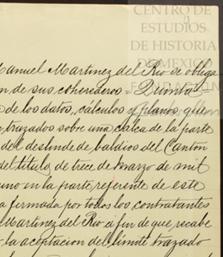 CENTRO DE
ESTUDIOS
DE HISTORIA
DE MEXICO
Manuel Martinez del Rio se obliga
n de sus coherederos a Quinto
de los datos, cálculos y planos que
trazados sobre una cerca de la parte
el deslinde de baldíos del Canton
del título de trece de marzo de mil
uno en la parte referente de este
a firmada por todos los contratantes
Martinez del Rio á fin de que recabe
la aceptacion del límite trazado